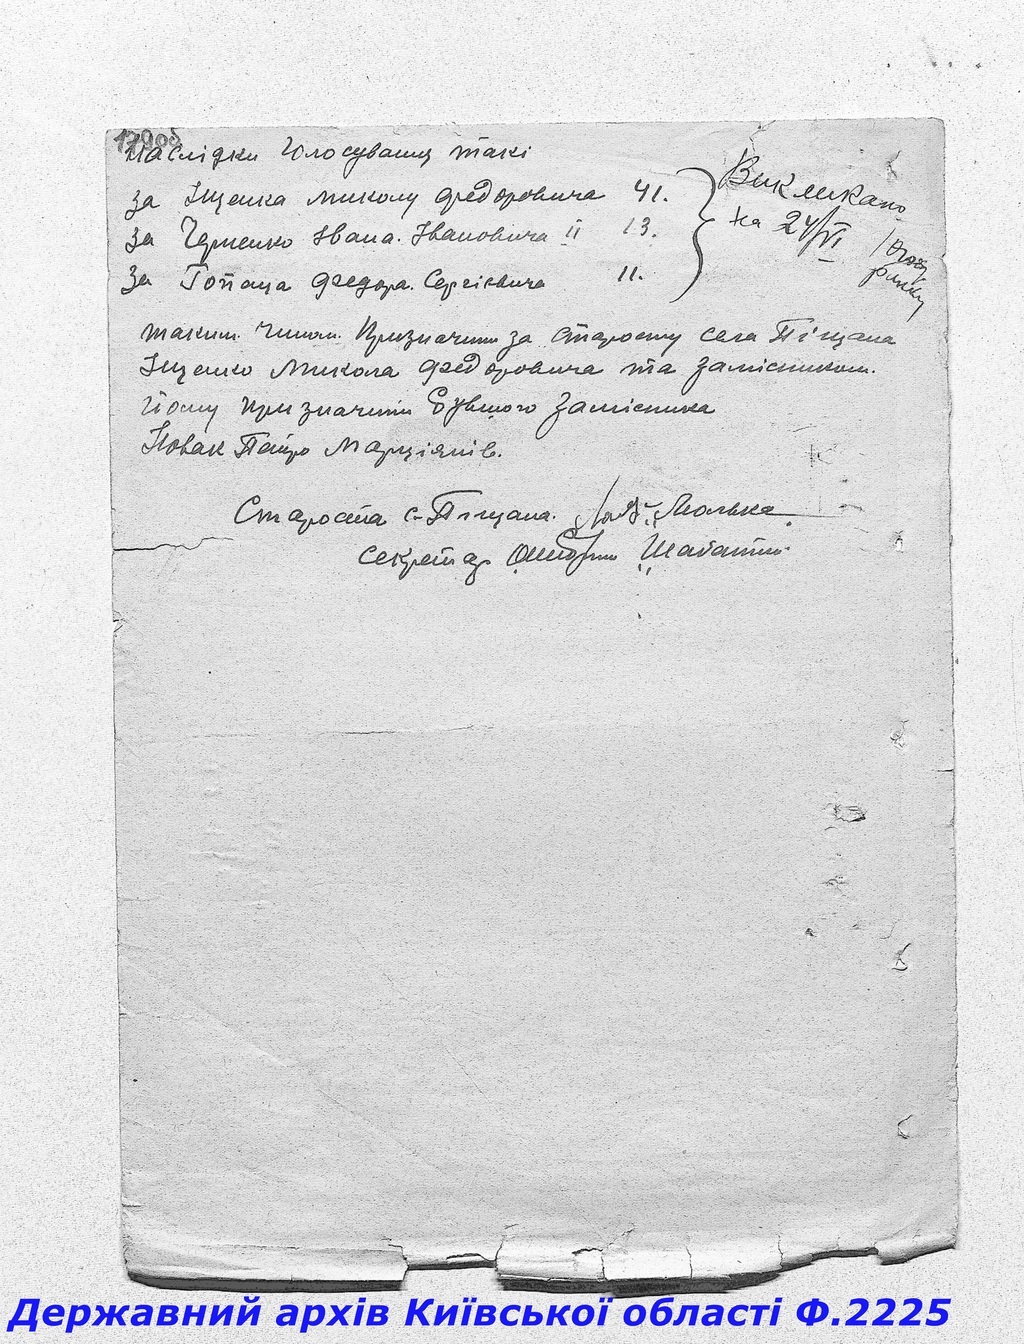 179об
Наслідки Голосування такі
За Іщенка Миколу Федоровича 41.
За Івана. Івановича ІІ 13.
За Федора. Сергієвича 11.
Викликано
на 24/VI
ранку
Таким. Чином. Призначити за Старосту села Піщана
Іщенко Микола Федоровича та Замісником.
Йому призначити Бувшого Замісника
Новак Петро Марціянів.
Староста с. Піщана.
Секретар
Державний архів Київської області Ф.2225